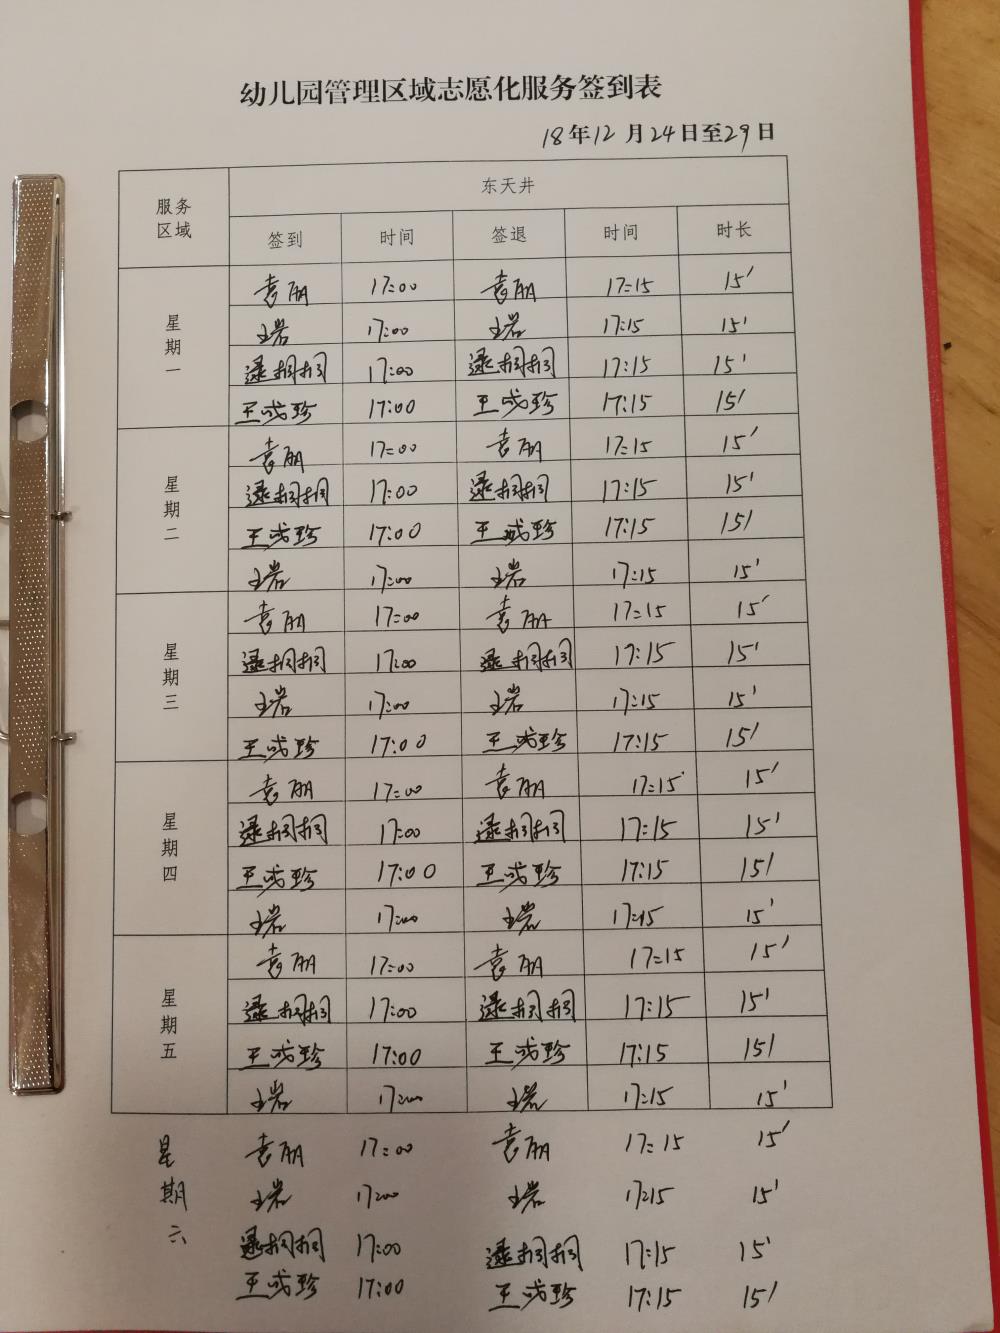 幼儿园管理区域志愿化服务签到表
18年12月24日至29日
服务区域 东天井
签到 时间 签退 时间 时长
星期一
袁丽 17:00 袁丽 17:15 15'
王岩 17:00 王岩 17:15 15'
逯桐桐 17:00 逯桐桐 17:15 15'
王成珍 17:00 王成珍 17:15 15'
星期二
袁丽 17:00 袁丽 17:15 15'
逯桐桐 17:00 逯桐桐 17:15 15'
王成珍 17:00 王成珍 17:15 15'
王岩 17:00 王岩 17:15 15'
星期三
袁丽 17:00 袁丽 17:15 15'
逯桐桐 17:00 逯桐桐 17:15 15'
王岩 17:00 王岩 17:15 15'
王成珍 17:00 王成珍 17:15 15'
星期四
袁丽 17:00 袁丽 17:15 15'
逯桐桐 17:00 逯桐桐 17:15 15'
王成珍 17:00 王成珍 17:15 15'
王岩 17:00 王岩 17:15 15'
星期五
袁丽 17:00 袁丽 17:15 15'
逯桐桐 17:00 逯桐桐 17:15 15'
王成珍 17:00 王成珍 17:15 15'
王岩 17:00 王岩 17:15 15'
星期六
袁丽 17:00 袁丽 17:15 15'
王岩 17:00 王岩 17:15 15'
逯桐桐 17:00 逯桐桐 17:15 15'
王成珍 17:00 王成珍 17:15 15'